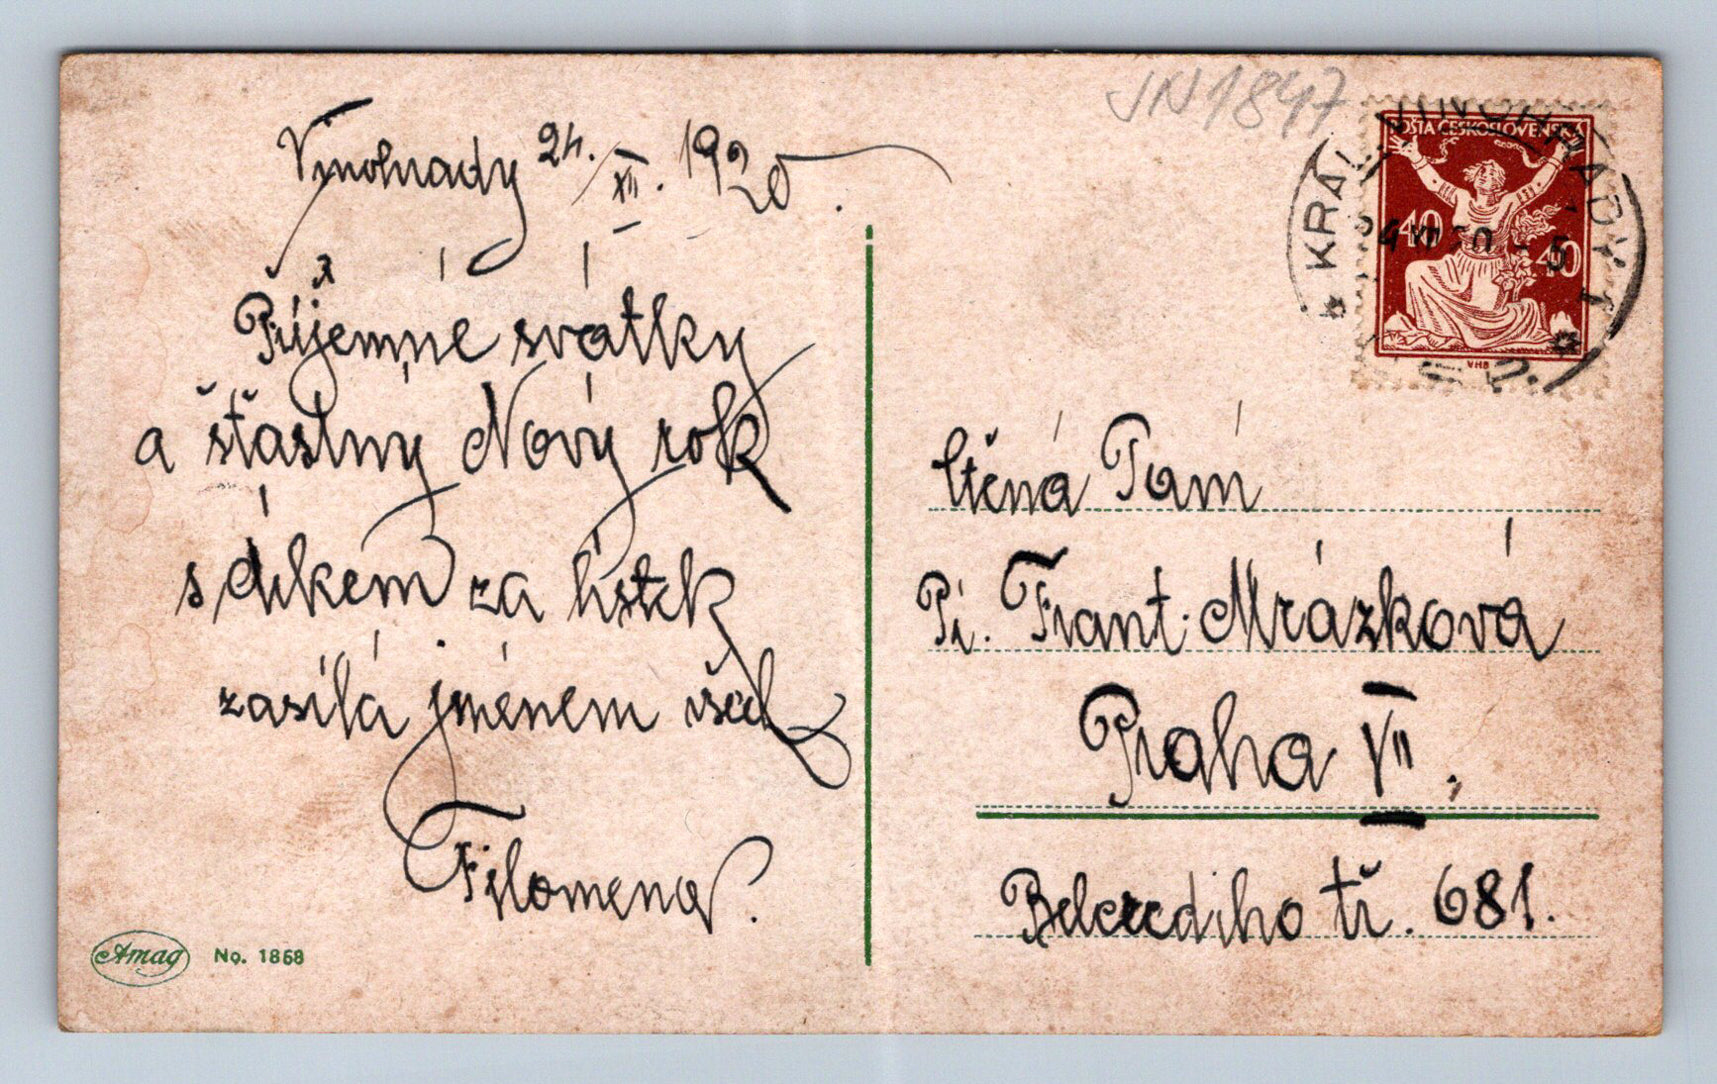 Vinohrady 24./XII. 1920.
Příjemné svátky
a šťastný Nový rok
s díkem za lístek
zasílá jménem všech
Filomena.
Amag No. 1868
JN1847
POŠTA ČESKOSLOVENSKÁ
40 40
VHB
KRÁL. VINOHRADY 1
24 XII 20 - 5
Ctěná Paní
Pí. Frant. Mrázková
Praha VII.
Belcrediho tř. 681.